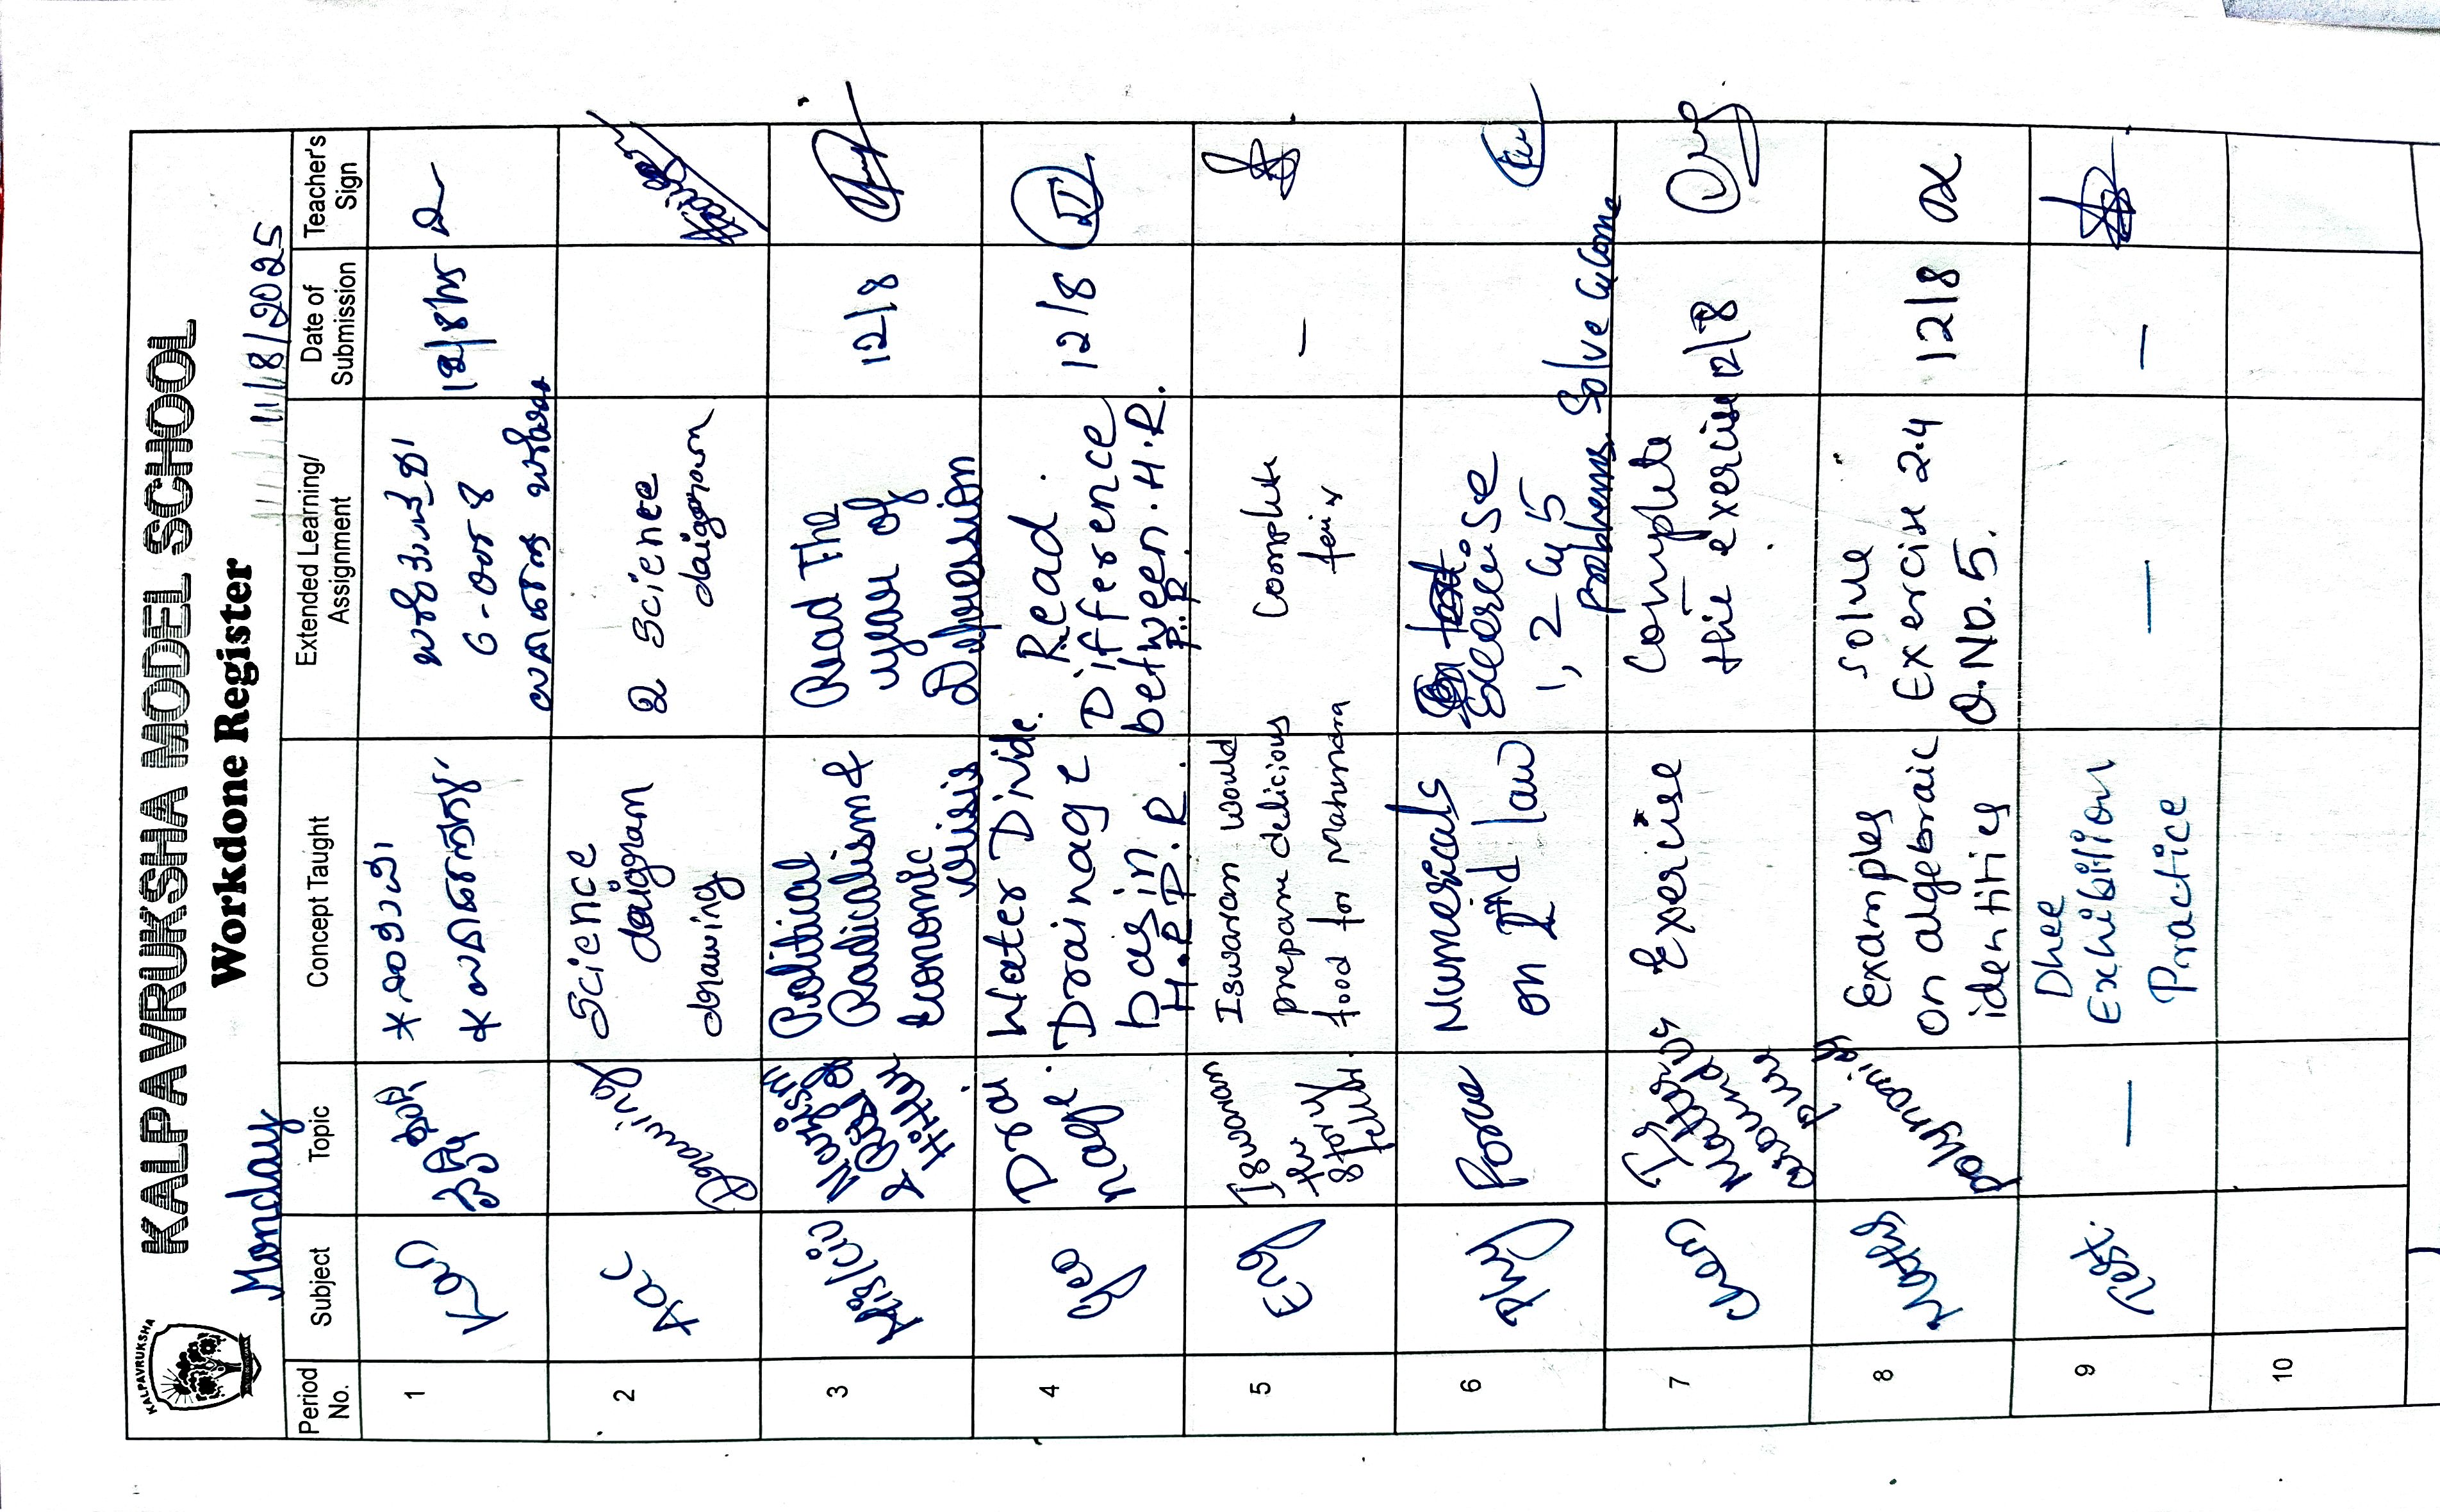 KALPAVRUKSHA
KALPAVRUKSHA MODEL SCHOOL
Workdone Register
Monday
11/8/2025
Period No.
Subject
Topic
Concept Taught
Extended Learning/ Assignment
Date of Submission
Teacher's Sign
1
Kan
2
Aac
Drawing
Science
daigram
drawing
2 Science
daigram
3
His/Civ
Nazism
& Rise of
Hitler
Political
Radicalism &
Economic
crisis
Read The
year of
Depression
12/8
4
Geo
Drai
nage.
Water Divide.
Drainage
basin
H.R P.R.
Read.
Difference
between. H.R.
P.R.
12/8
5
Eng
Iswaran
the
story
teller.
Iswaran would
prepare delicious
food for Mahendra
Complete
_
6
Phy
Force
Numericals
on IInd law
Exercise
1, 2 & 5
problems. Solve
7
Chem
Is
Matter
around us
pure
Exercise
Complete
the exercise
12/8
8
Maths
polynomials
Examples
on algebraic
identities
Solve
Exercise 2.4
Q. No. 5.
12/8
9
Test.
—
Dhee
Exhibition
Practice
—
—
10